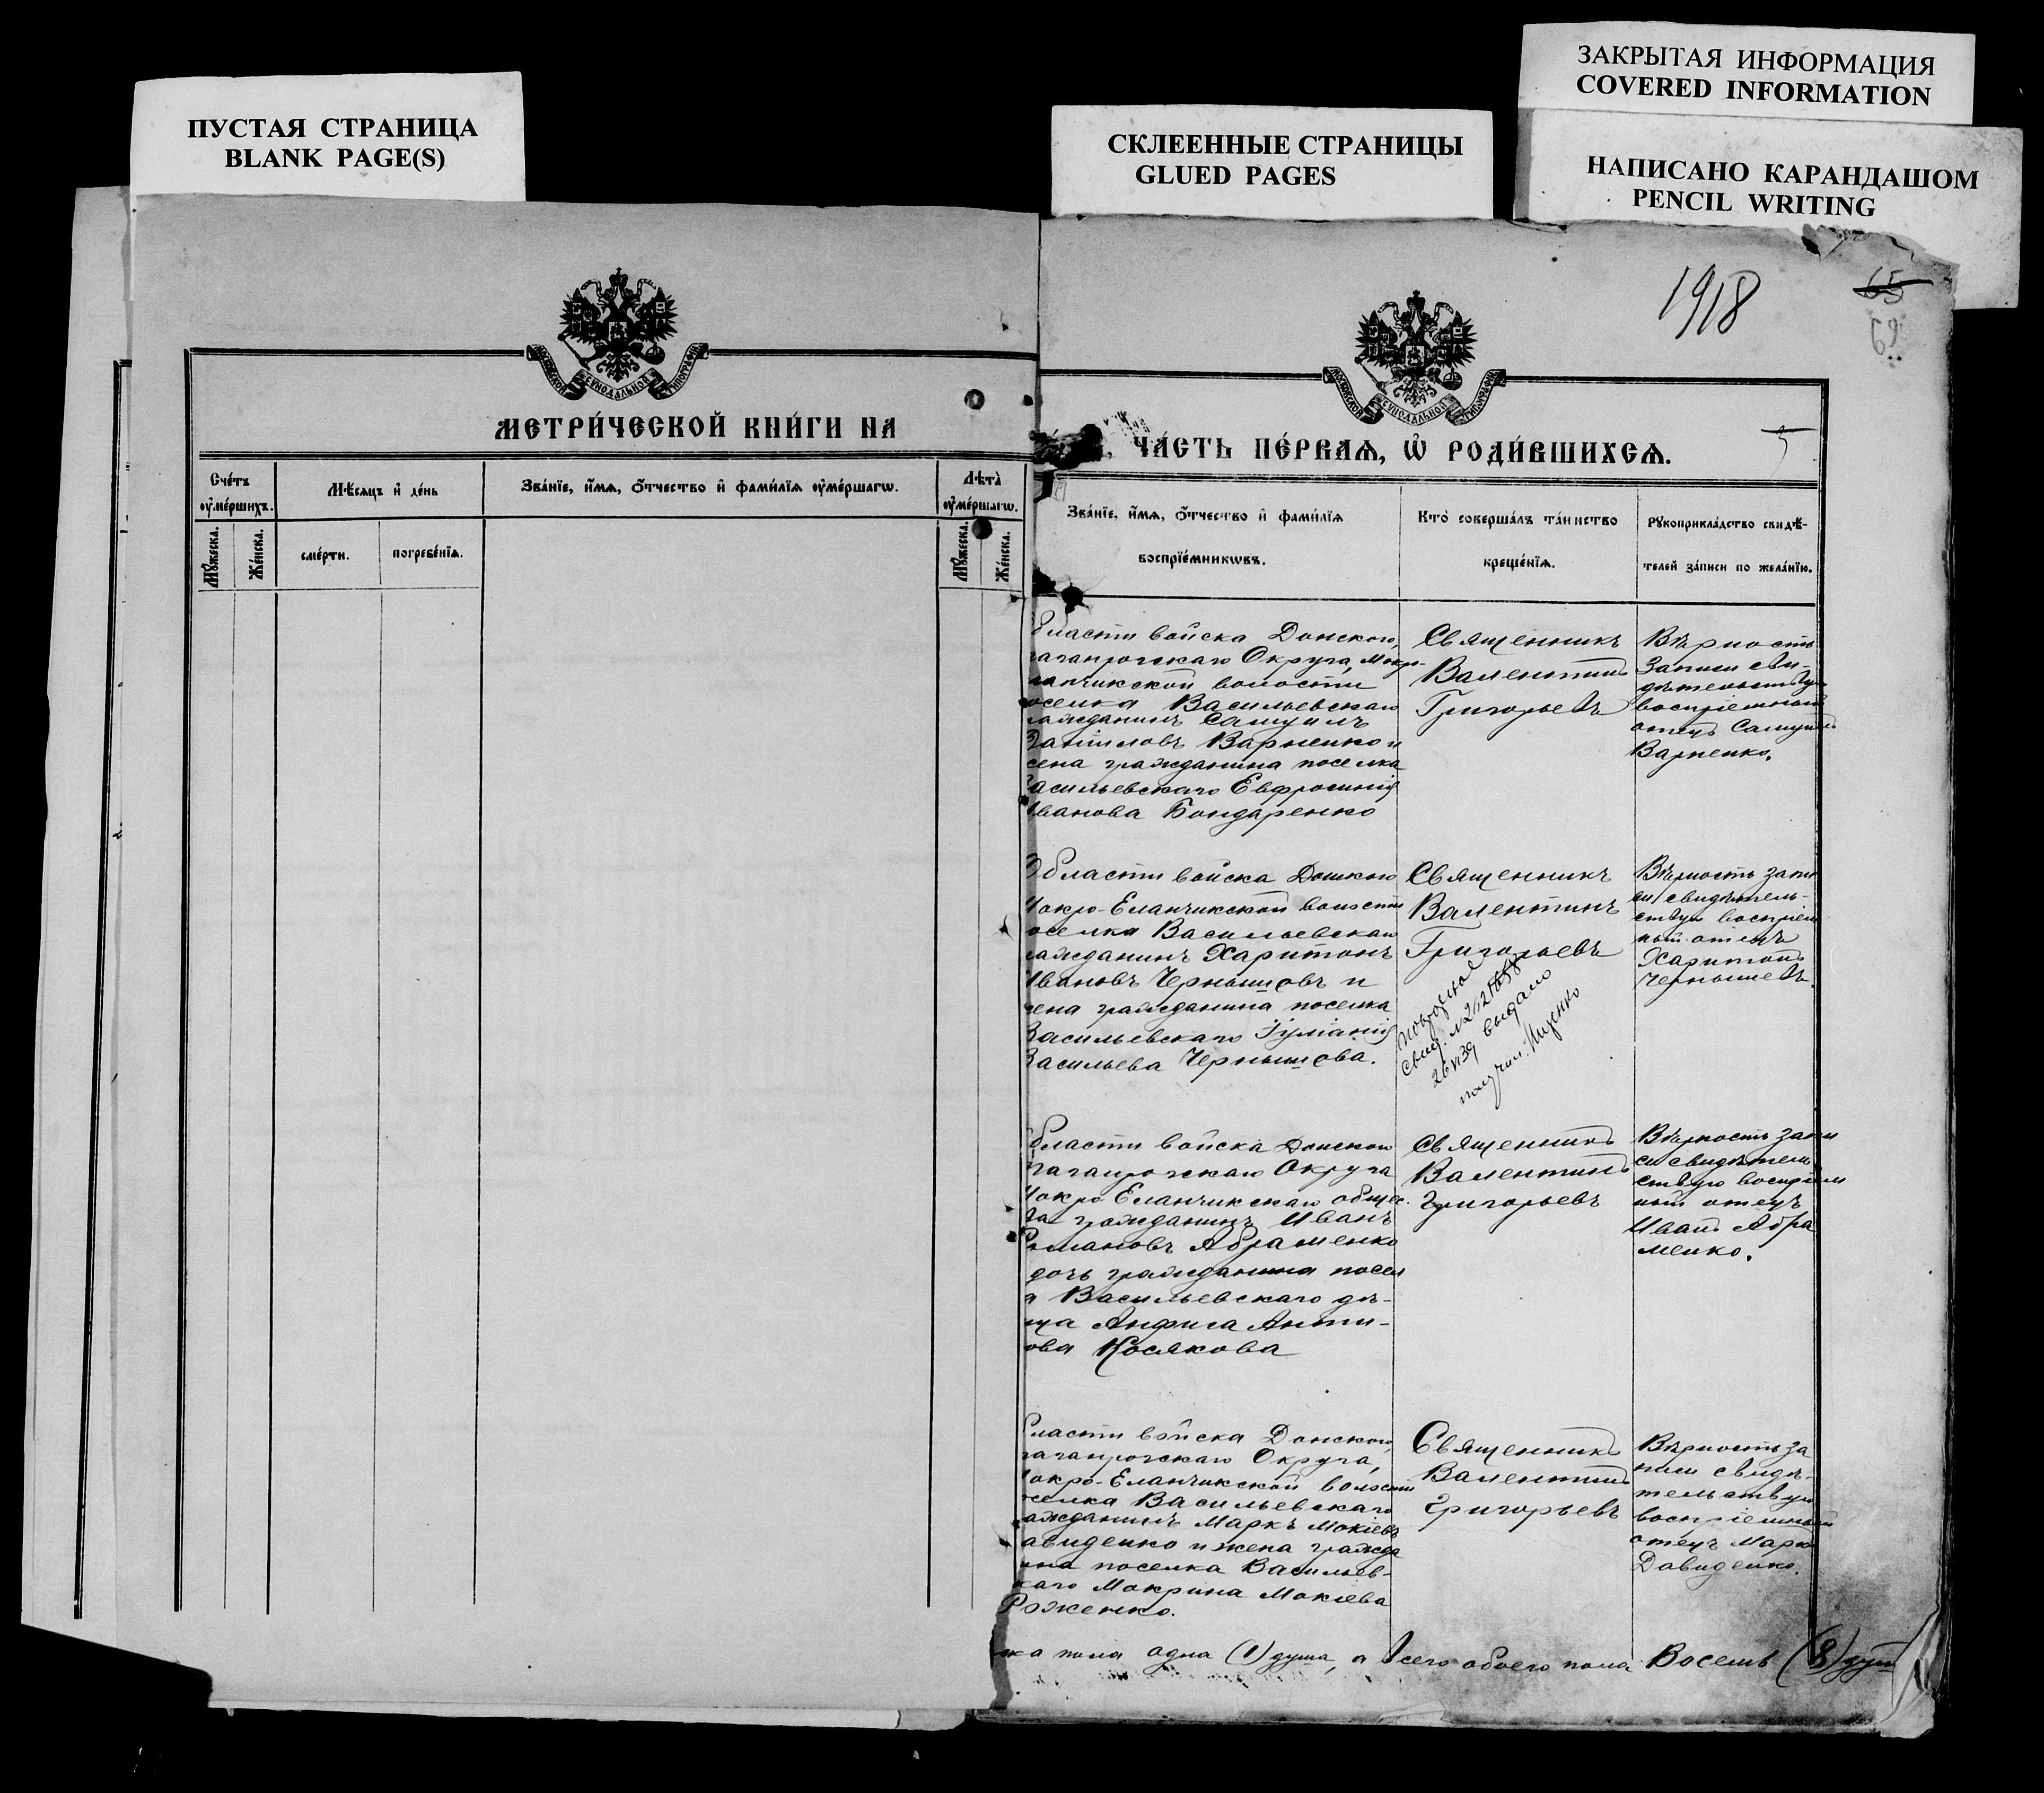 ПУСТАЯ СТРАНИЦА
BLANK PAGE(S)
СКЛЕЕННЫЕ СТРАНИЦЫ
GLUED PAGES
ЗАКРЫТАЯ ИНФОРМАЦИЯ
COVERED INFORMATION
НАПИСАНО КАРАНДАШОМ
PENCIL WRITING
МОСКОВСКОЙ СѴНОДАЛЬНОЙ ТИПОГРАФІИ
МЕТРИ́ЧЕСКОЙ КНИ́ГИ НА
Сче́тъ
ᲂу҆ме́ршихъ.
Мѣ́сяцъ и҆ де́нь
Зва́нїе, и҆́мѧ, ѻ҆́тчество и҆ фами́лїѧ ᲂу҆ме́ршагѡ.
Лѣ̀та
ᲂу҆ме́ршагѡ.
Мꙋ́жеска.
Же́нска.
сме́рти.
погребе́нїѧ.
Мꙋ́жеска.
Же́нска.
1918
65
МОСКОВСКОЙ СѴНОДАЛЬНОЙ ТИПОГРАФІИ
ЧА́СТЬ ПЕ́РВАѦ, Ѡ҆ РОДИ́ВШИХСѦ.
Зва́нїе, и҆́мѧ, ѻ҆́тчество и҆ фами́лїѧ
воспрїе́мникѡвъ.
Кто̀ соверша́лъ та́инство
креще́нїѧ.
Рꙋкоприкла́дство свидѣ́-
телей за́писи по жела́нїю.
бласти войска Донского,
аганрогскаго Округа, Мокро-
ланчикской волости
оселка Васильевскаго
ражданинъ Самуилъ
Даниловъ Варненко и
жена гражданина поселка
Васильевскаго Евфросинія
Иванова Бондаренко
Священникъ
Валентинъ
Григорьевъ
Вѣрность
записи сви-
дѣтельствую
воспріемный
отецъ Самуилъ
Варненко.
Области войска Донского
Мокро-Еланчикской волости
оселка Васильевскаго
ражданинъ Харитонъ
Ивановъ Чернышовъ и
жена гражданина поселка
Васильевскаго Іуліанія
Васильева Чернышова.
Священникъ
Валентинъ
Григорьевъ
повторное
свид.
26 VI 39 выдано
получил. Ищенко
Вѣрность запи
си свидѣтель-
ствую воспріем
ный отецъ
Харитонъ
Чернышевъ.
бласти войска Донского
Таганрогскаго Округа
Мокро Еланчикскаго общес.
ва гражданинъ Иванъ
Романовъ Абраменко
дочь гражданина посел
а Васильевскаго дѣ-
ица Анфиса Анти-
ова Косякова
Священникъ
Валентинъ
Григорьевъ
Вѣрность запи
си свидѣтель
ствую воспріем
ный отецъ
Иванъ Абра
менко.
бласти войска Донского,
аганрогскаго Округа,
Мокро-Еланчикской волости
оселка Васильевскаго
ажданинъ Маркъ Мокіевъ
авиденко и жена гражда
ина поселка Васильев-
каго Макрина Мокіева
Роженко.
Священникъ
Валентинъ
Григорьевъ
Вѣрность за
писи свидѣ-
тельствую
воспріемный
отецъ Маркъ
Давиденко.
ска пола одна (1) душа, а всего обоего пола Восемь (8) душ